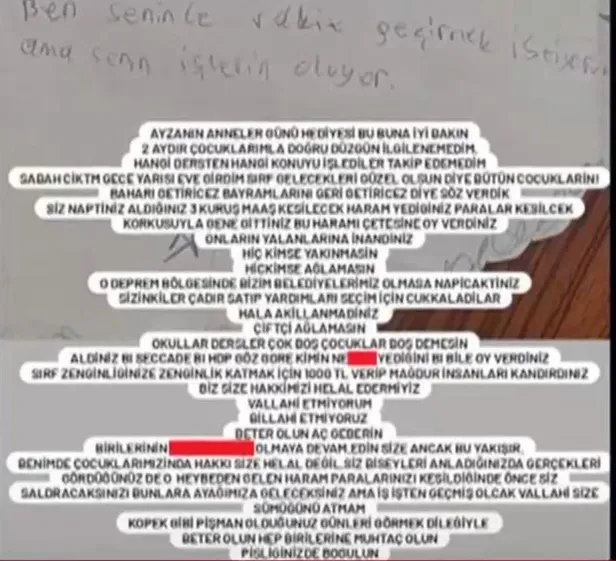 Ben seninle vakit geçirmek istiyorum
ama senin işlerin oluyor.
AYZANIN ANNELER GÜNÜ HEDİYESİ BU BUNA İYİ BAKIN
2 AYDIR ÇOCUKLARIMLA DOĞRU DÜZGÜN İLGİLENEMEDİM.
HANGİ DERSTEN HANGİ KONUYU İŞLEDİLER TAKİP EDEMEDİM
SABAH CİKTM GECE YARISI EVE GİRDİM SIRF GELECEKLERİ GÜZEL OLSUN DİYE BÜTÜN COCUKLARIN!
BAHARI GETİRİCEZ BAYRAMLARINI GERİ GETİRİCEZ DİYE SÖZ VERDİK
SİZ NAPTINIZ ALDIĞINIZ 3 KURUŞ MAAŞ KESİLECEK HARAM YEDİGİNİZ PARALAR KESİLCEK
KORKUSUYLA GENE GİTTİNİZ BU HARAMİ ÇETESİNE OY VERDİNİZ
ONLARIN YALANLARINA İNANDINIZ
HİÇ KİMSE YAKINMASIN
HİCKİMSE AĞLAMASIN
O DEPREM BÖLGESİNDE BİZİM BELEDİYELERİMİZ OLMASA NAPICAKTINIZ
SİZİNKİLER ÇADIR SATIP YARDIMLARI SEÇİM İÇİN CUKKALADILAR
HALA AKILLANMADINIZ
ÇİFTÇİ AĞLAMASIN
OKULLAR DERSLER ÇOK BOŞ ÇOCUKLAR BOŞ DEMESİN
ALDINIZ BI SECCADE BI HDP GÖZ GÖRE KİMİN NE YEDİĞİNİ BI BİLE OY VERDİNİZ
SIRF ZENGİNLİGİNİZE ZENGİNLİK KATMAK İÇİN 1000 TL VERİP MAĞDUR İNSANLARI KANDIRDINIZ
BİZ SİZE HAKKIMIZI HELAL EDERMİYİZ
VALLAHİ ETMİYORUM
BİLLAHİ ETMİYORUZ
BETER OLUN AÇ GEBERİN
BİRİLERİNİN OLMAYA DEVAM EDİN SİZE ANCAK BU YAKIŞIR.
BENIMDE ÇOCUKLARIMIZINDA HAKKI SİZE HELAL DEĞİL SİZ BİSEYLERİ ANLADIĞINIZDA GERÇEKLERİ
GÖRDÜĞÜNÜZ DE O HEYBEDEN GELEN HARAM PARALARINIZI KESİLDİĞİNDE ÖNCE SİZ
SALDRACAKSINIZI BUNLARA AYAĞIMIZA GELECEKSİNİZ AMA İŞ İŞTEN GEÇMİŞ OLCAK VALLAHİ SİZE
SÜMÜĞÜMÜ ATMAM
KOPEK GİBİ PİŞMAN OLDUĞUNUZ GÜNLERİ GÖRMEK DİLEĞİYLE
BETER OLUN HEP BİRİLERİNE MUHTAÇ OLUN
PİSLİGİNİZDE BOGULUN